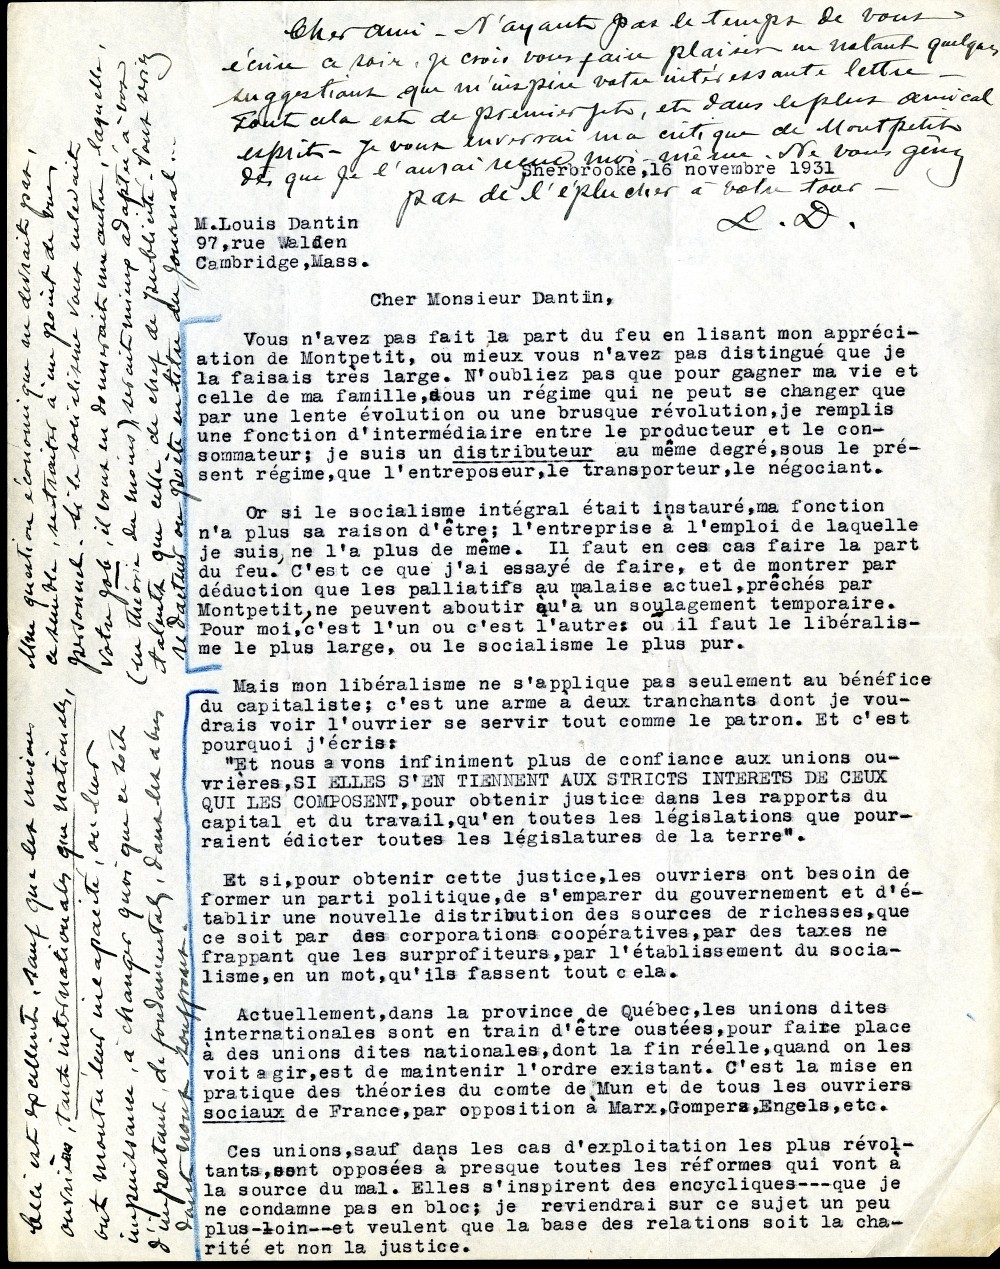 Cher ami - N'ayant pas le temps de vous
écrire ce soir, je crois vous faire plaisir en notant quelques
suggestions que m'inspire votre intéressante lettre -
Tout cela est de premier jet, et dans le plus amical
esprit - Je vous enverrai ma critique de Montpetit
dès que je l'aurai reçue moi-même. Ne vous gênez
pas de l'éplucher à votre tour -
L. D.
Sherbrooke,16 novembre 1931
M.Louis Dantin
97,rue Walden
Cambridge,Mass.
Cher Monsieur Dantin,
Vous n'avez pas fait la part du feu en lisant mon appréci-
ation de Montpetit, ou mieux vous n'avez pas distingué que je
la faisais très large. N'oubliez pas que pour gagner ma vie et
celle de ma famille,sous un régime qui ne peut se changer que
par une lente évolution ou une brusque révolution,je remplis
une fonction d'intermédiaire entre le producteur et le con-
sommateur; je suis un distributeur au même degré,sous le pré-
sent régime,que l'entreposeur,le transporteur,le négociant.
Or si le socialisme intégral était instauré,ma fonction
n'a plus sa raison d'être; l'entreprise à l'emploi de laquelle
je suis, ne l'a plus de même. Il faut en ces cas faire la part
du feu. C'est ce que j'ai essayé de faire, et de montrer par
déduction que les palliatifs au malaise actuel,prêchés par
Montpetit,ne peuvent aboutir qu'à un soulagement temporaire.
Pour moi,c'est l'un ou c'est l'autre: où il faut le libéralis-
me le plus large, ou le socialisme le plus pur.
Mais mon libéralisme ne s'applique pas seulement au bénéfice
du capitaliste; c'est une arme à deux tranchants dont je vou-
drais voir l'ouvrier se servir tout comme le patron. Et c'est
pourquoi j'écris:
"Et nous avons infiniment plus de confiance aux unions ou-
vrières,SI ELLES S'EN TIENNENT AUX STRICTS INTERETS DE CEUX
QUI LES COMPOSENT,pour obtenir justice dans les rapports du
capital et du travail,qu'en toutes les législations que pour-
raient édicter toutes les législatures de la terre".
Et si,pour obtenir cette justice,les ouvriers ont besoin de
former un parti politique,de s'emparer du gouvernement et d'é-
tablir une nouvelle distribution des sources de richesses,que
ce soit par des corporations coopératives,par des taxes ne
frappant que les surprofiteurs,par l'établissement du socia-
lisme,en un mot,qu'ils fassent tout cela.
Actuellement,dans la province de Québec,les unions dites
internationales sont en train d'être oustées,pour faire place
à des unions dites nationales,dont la fin réelle,quand on les
voit agir,est de maintenir l'ordre existant. C'est la mise en
pratique des théories du comte de Mun et de tous les ouvriers
sociaux de France,par opposition à Marx,Gompers,Engels,etc.
Ces unions,sauf dans les cas d'exploitation les plus révol-
tants,sont opposées à presque toutes les réformes qui vont à
la source du mal. Elles s'inspirent des encycliques---que je
ne condamne pas en bloc; je reviendrai sur ce sujet un peu
plus-loin--et veulent que la base des relations soit la cha-
rité et non la justice.
Une question économique ne devrait pas,
ce semble, se traiter à un point de vue
personnel. Si le socialisme vous enlevait
votre job, il vous en donnerait une autre, laquelle,
(en théorie du moins) serait mieux adaptée à vos
talents que celle de chef de publicité. Vous seriez
rédacteur ou poète en titre du journal...
Ceci est excellent, sauf que les unions
ouvrières, tant internationales que nationales,
ont montré leur incapacité, ou leur
impuissance, à changer quoi que ce soit
d'important, de fondamental, dans les abus
dont nous souffrons.